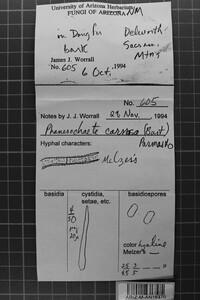 University of Arizona Herbarium
FUNGI OF ARIZONA NM
on Doug fir
bark
Delworth
Sacram.
Mtns
James J. Worrall
No. 605 6 Oct, 1994
No. 605
Notes by J. J. Worrall 29 Nov, 1994
Phanerochaete carnosa (Burt)
Parmasto
Hyphal characters:
Melzers
basidia
cystidia,
setae, etc.
basidiospores
color hyaline
Melzer's —